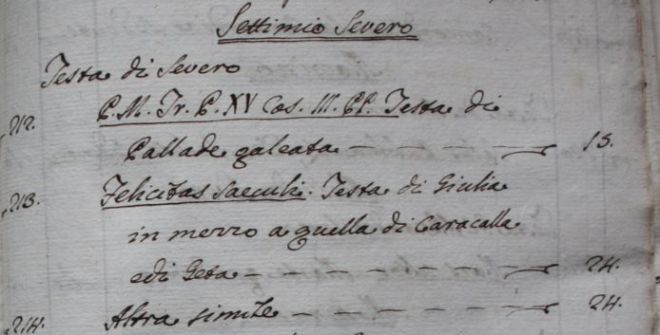 Settimio Severo
Testa di Severo
212. P. M. Tr. P. XV Cos. III. PP. Testa di
Pallade galeata — — — — 15.
213. Felicitas Saeculi. Testa di Giulia
in mezzo a quella di Caracalla
e di Geta — — — — — — 24.
214. Altra simile — — — — — 24.